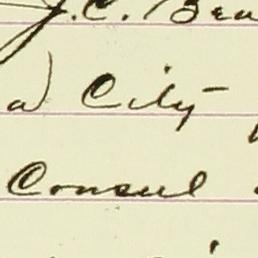 J. C. Bea
a) City
Consul